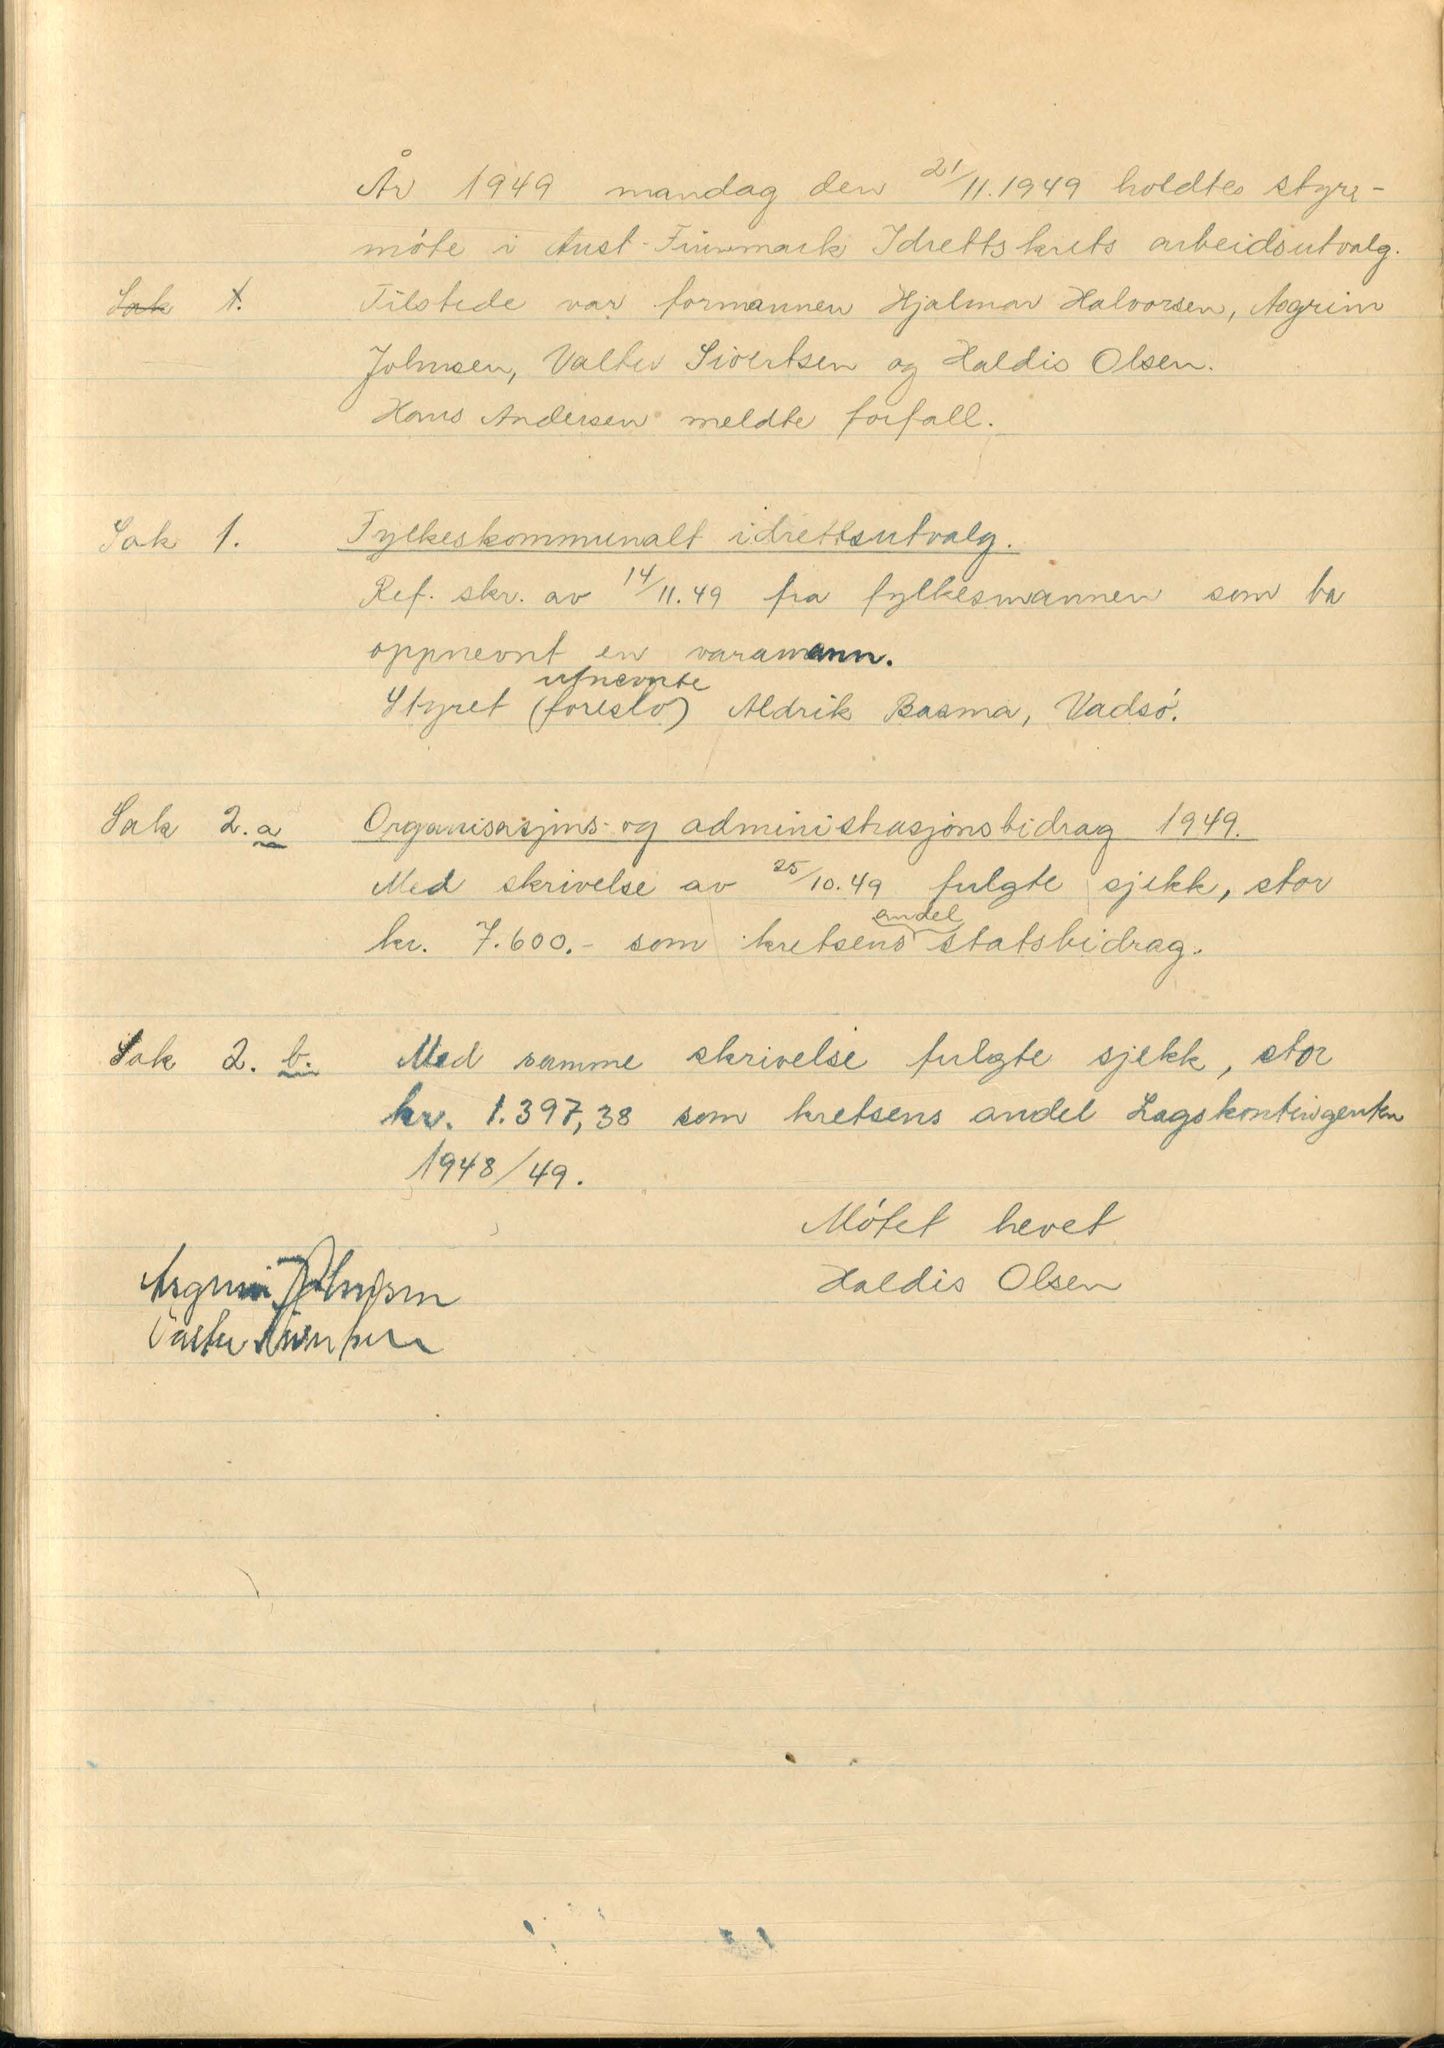 År 1949 mandag den 21/11.1949 holdtes styre-
møte i Aust-Finnmark Idrettskrets arbeidsutvalg.
Sak 1. Tilstede var formannen Hjalmar Halvorsen, Asgrim
Johnsen, Valter Sivertsen og Haldis Olsen.
Hans Andersen meldte forfall.
Sak 1. Fylkeskommunalt idrettsutvalg.
Ref. skr. av 14/11.49 fra fylkesmannen som ba
oppnevnt en varamann.
utnevnte
Styret (foreslo) Aldrik Basma, Vadsø.
Sak 2.a Organisasjons- og administrasjonsbidrag 1949.
Med skrivelse av 25/10.49 fulgte sjekk, stor
andel
kr. 7.600.- som kretsens statsbidrag.
Sak 2. b. Med samme skrivelse fulgte sjekk, stor
kr. 1.397,38 som kretsens andel Lagskontingenten
1948/49.
Møtet hevet
Haldis Olsen
Asgrim Johnsen
Valter Sivertsen